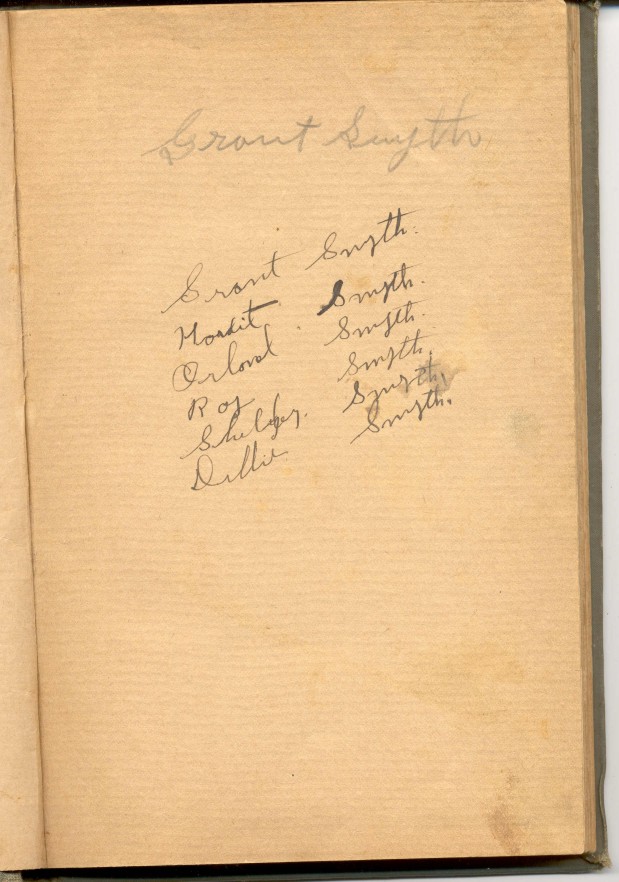 Grant Smyth
Grant Smyth.
Smyth.
Orloval Smyth.
Roy Smyth.
Shelby. Smyth.
Dillie Smyth.